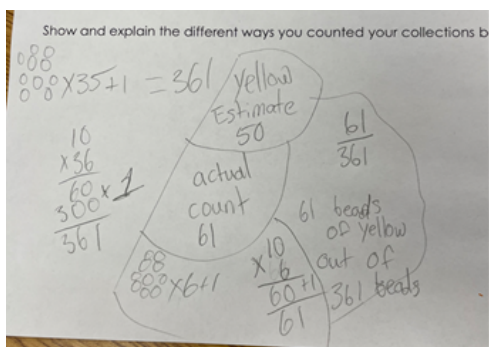 Show and explain the different ways you counted your collections b
×35+1 = 361
yellow
Estimate
50
61
361
10
×36
60 × 1
300
361
actual
count
61
61 beads
of yellow
out of
361 beads
×6+1
10
×6
60 +1
61